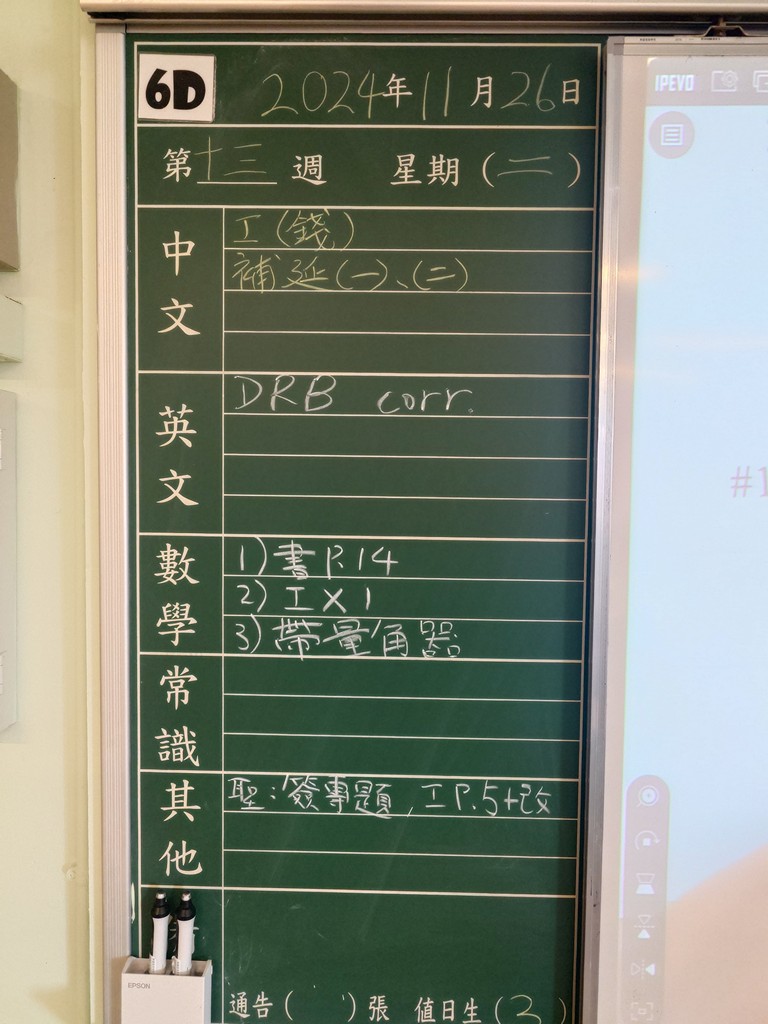 6D 2024年11月26日
第十三週 星期(二)
中文
工(錢)
補延(一)、(二)
英文
DRB corr.
數學
1)書P.14
2)工X1
3)帶量角器
常識
其他
聖:簽專題,工P.5+改
通告( )張 值日生(3)
EPSON
IPEVO
#1